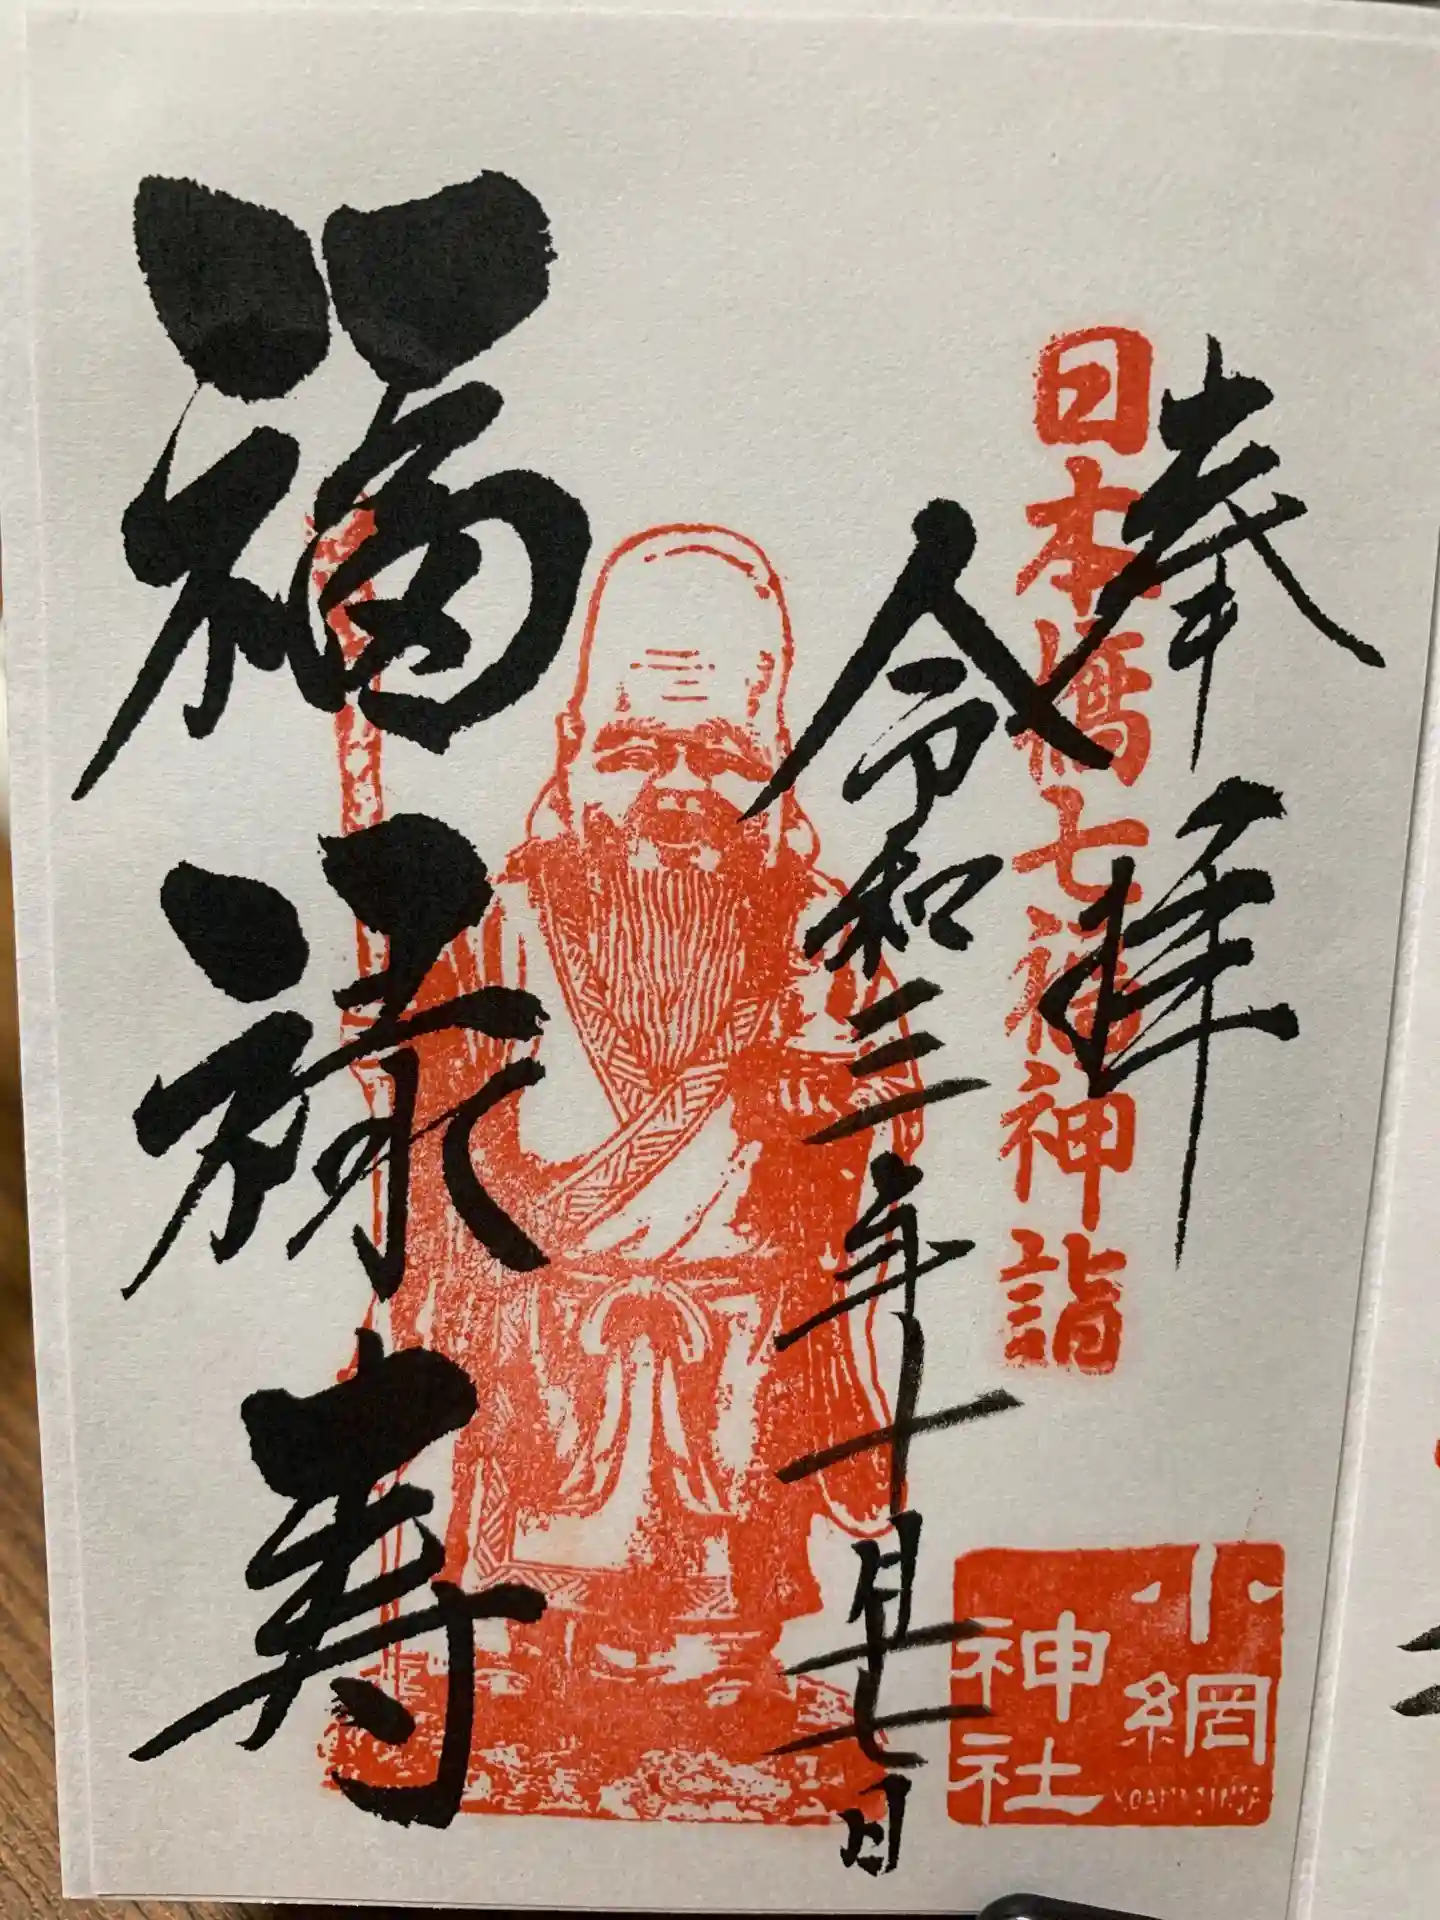 奉拝
日本橋七福神詣
令和三年十月十七日
福禄寿
小網
神社
KOAMI JINJA